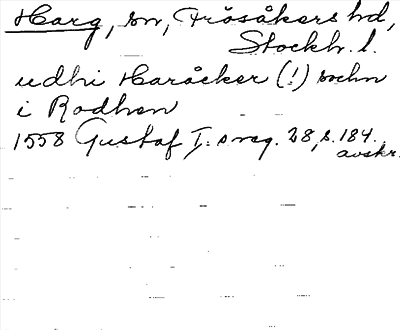 Harg, sn, Frösåkers hd,
Stockh. l.
udhi Haraker (!) sochn
i Rodhen
1558 Gustaf I:s reg. 28, s. 184.
avskr.